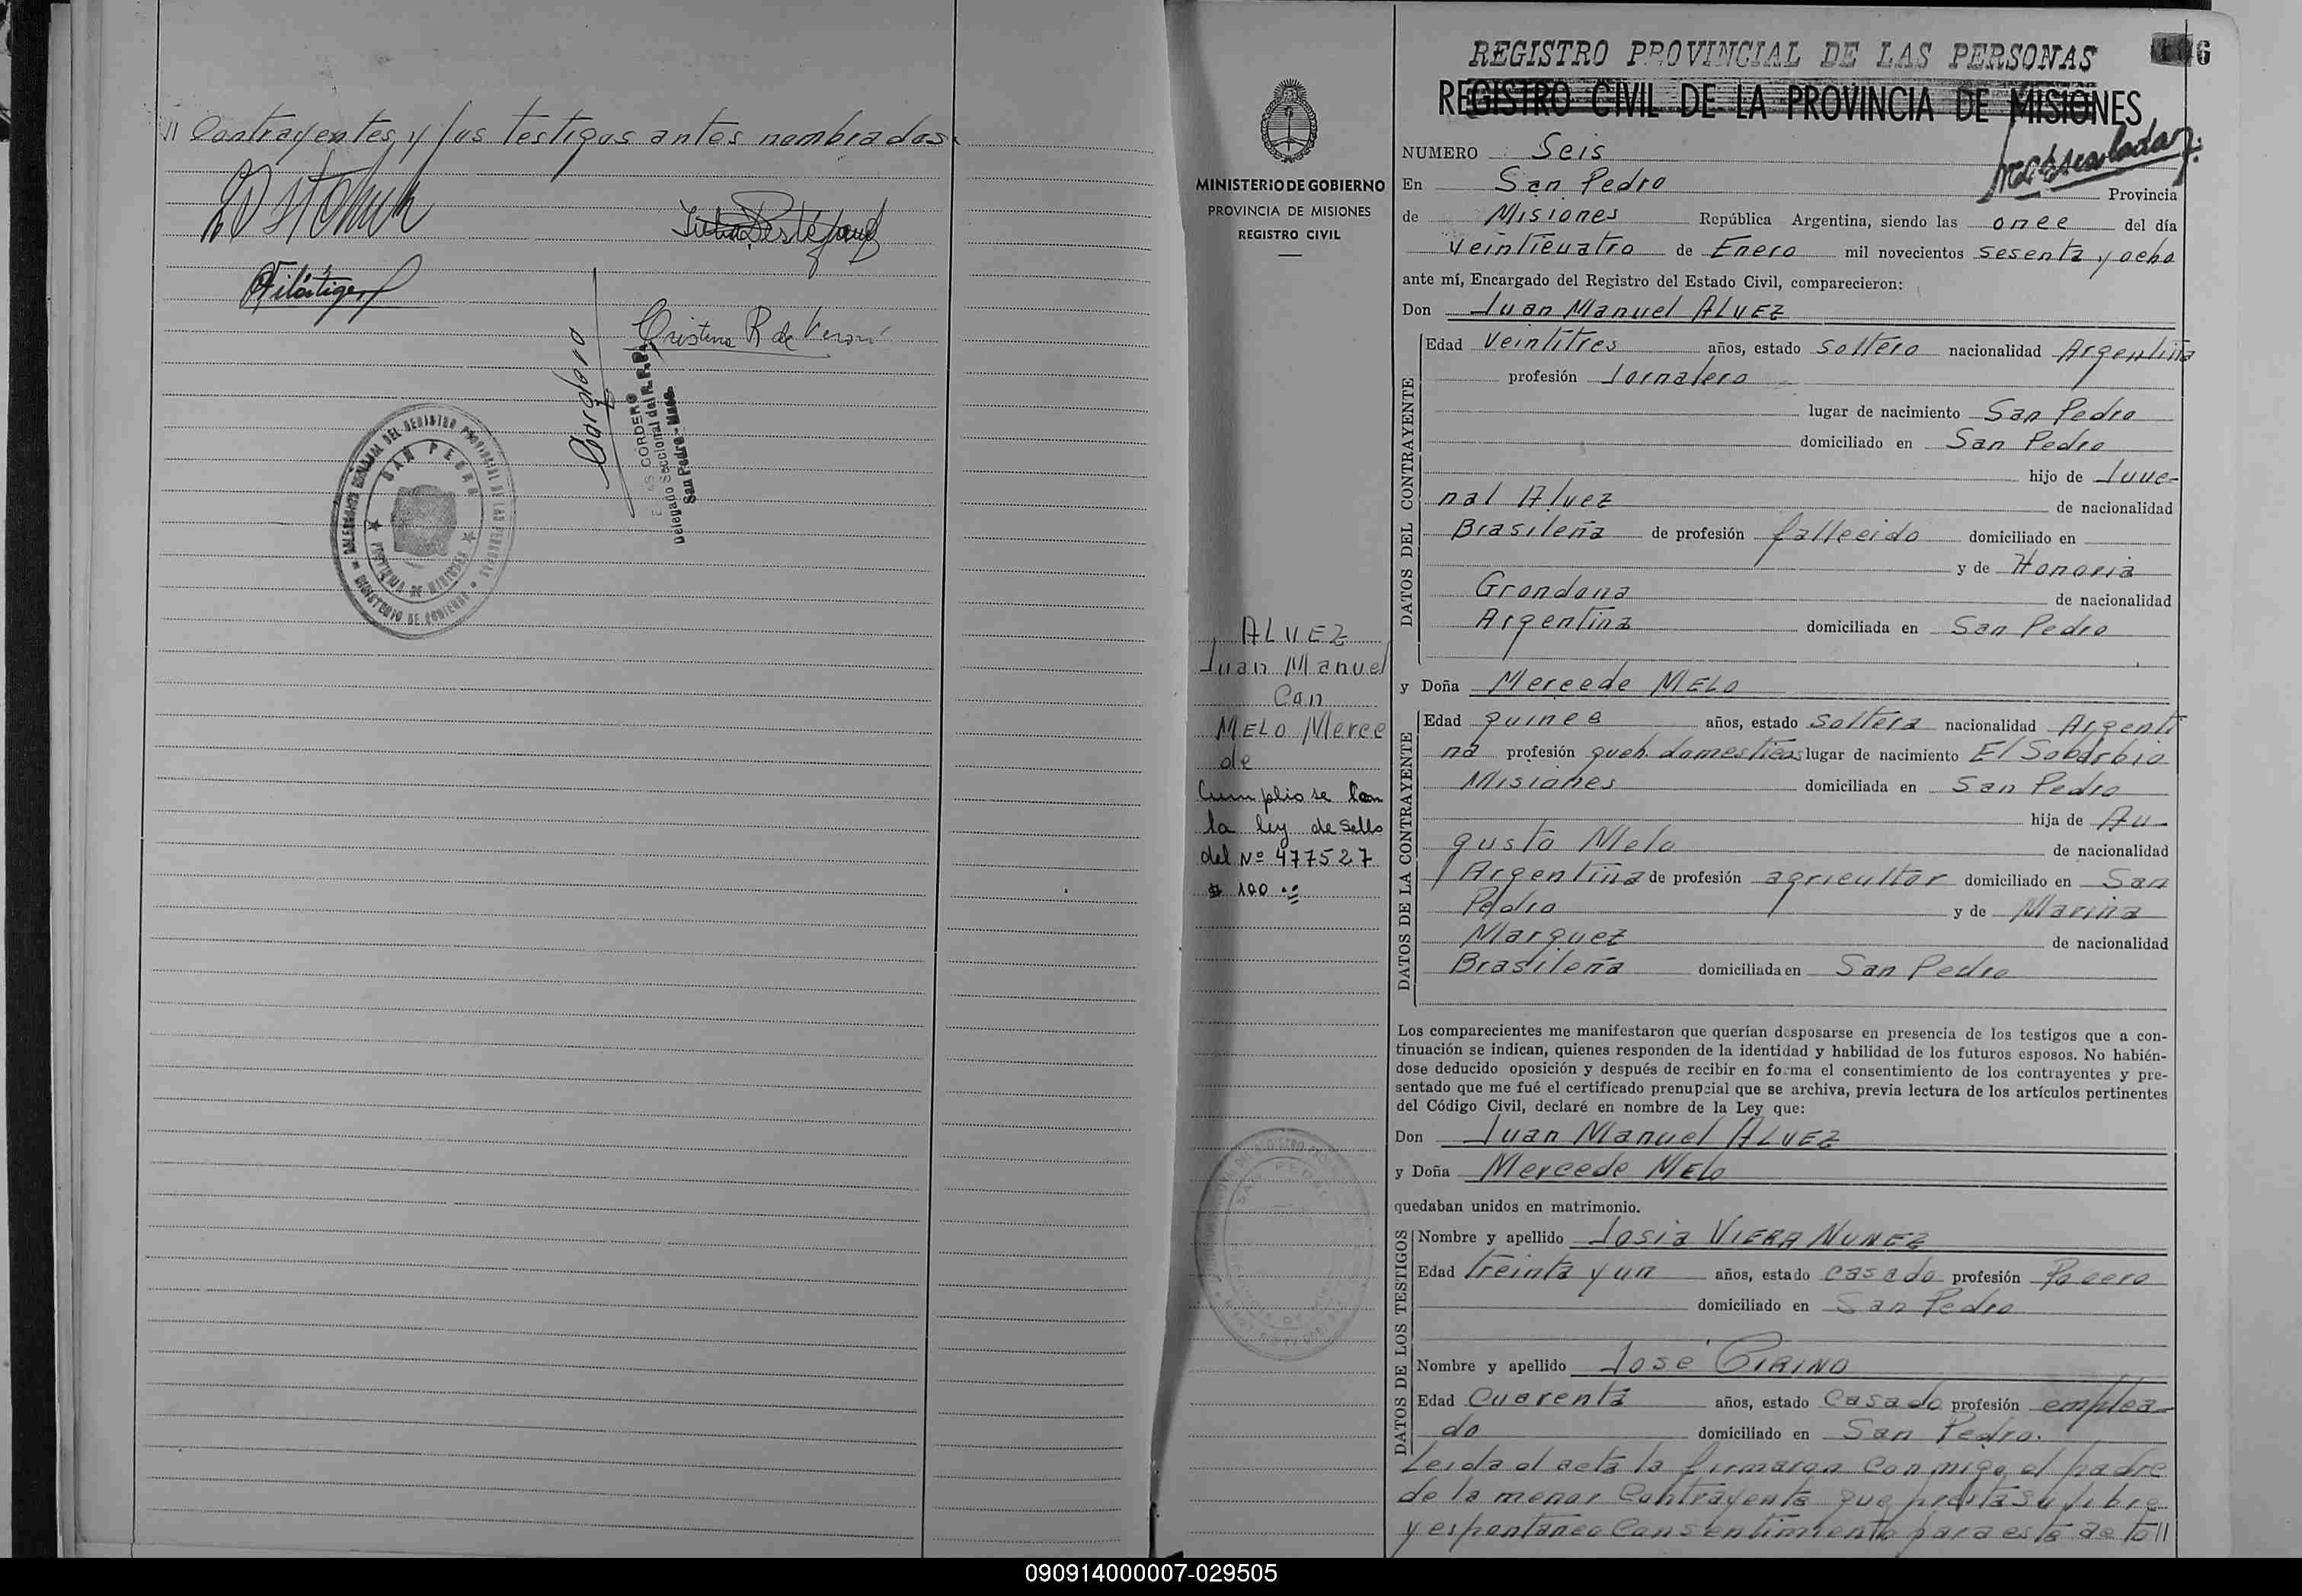 // Contrayentes, y los testigos antes nombrados.
Cristina R de
Cordero
CORDERO
Delegado Seccional del R.P.P.
San Pedro - Mnes.
SAN PEDRO
PROVINCIA DE MISIONES
MINISTERIO DE GOBIERNO
MINISTERIO DE GOBIERNO
PROVINCIA DE MISIONES
REGISTRO CIVIL
ALVEZ
Juan Manuel
Con
MELO Merce
de
Cumplio se con
la ley de sello
del Nº 477527
$ 100.00
REGISTRO PROVINCIAL DE LAS PERSONAS
6
REGISTRO CIVIL DE LA PROVINCIA DE MISIONES
NUMERO Seis
En San Pedro Provincia
de Misiones República Argentina, siendo las once del día
veinticuatro de Enero mil novecientos sesenta y ocho
ante mí, Encargado del Registro del Estado Civil, comparecieron:
Don Juan Manuel ALVEZ
DATOS DEL CONTRAYENTE
Edad Veintitres años, estado soltero nacionalidad Argentina
profesión Jornalero
lugar de nacimiento San Pedro
domiciliado en San Pedro
hijo de Juve-
nal Alvez de nacionalidad
Brasileña de profesión fallecido domiciliado en
y de Honoria
Grondona de nacionalidad
Argentina domiciliada en San Pedro
y Doña Mercede MELO
DATOS DE LA CONTRAYENTE
Edad quince años, estado soltera nacionalidad Argenti
na profesión queh. domesticos lugar de nacimiento El Soberbio
Misiones domiciliada en San Pedro
hija de Au-
gusto Melo de nacionalidad
Argentina de profesión agricultor domiciliado en San
Pedro y de Marina
Marquez de nacionalidad
Brasileña domiciliada en San Pedro
Los comparecientes me manifestaron que querían desposarse en presencia de los testigos que a con-
tinuación se indican, quienes responden de la identidad y habilidad de los futuros esposos. No habién-
dose deducido oposición y después de recibir en forma el consentimiento de los contrayentes y pre-
sentado que me fué el certificado prenupcial que se archiva, previa lectura de los artículos pertinentes
del Código Civil, declaré en nombre de la Ley que:
Don Juan Manuel ALVEZ
y Doña Mercede MELO
quedaban unidos en matrimonio.
DATOS DE LOS TESTIGOS
Nombre y apellido Josia VIERA NUNEZ
Edad treinta y un años, estado casado profesión Pocero
domiciliado en San Pedro
Nombre y apellido José CIRINO
Edad Cuarenta años, estado Casado profesión emplea-
do domiciliado en San Pedro.
Leida el acta la firmaron conmigo, el padre
de la menor Contrayente que presta su libre
y espontáneo Consentimiento para este acto //
090914000007-029505